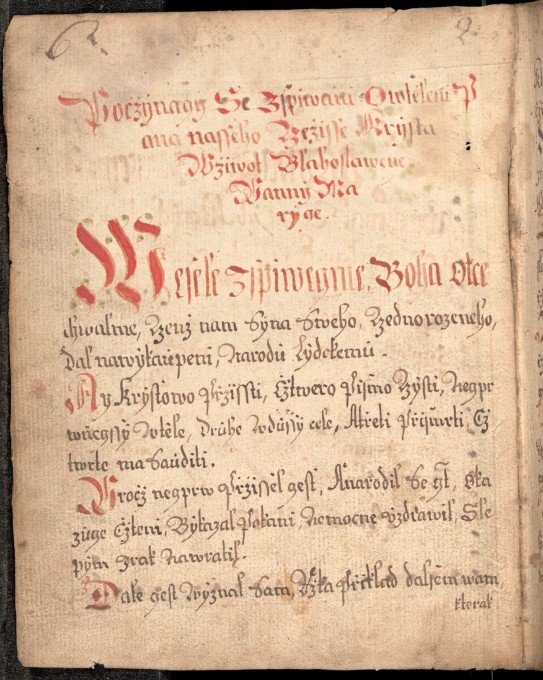 6. 2.
Počzynagy Se Zspiwani Owtěleni P
ana nasseho Gežisse Krysta
Wžiwot Blahoslawene
Panny Ma
rÿge
Wesele zspiweyme, Boha otce
chwalme, Genž nam Syna Sweho, Gednorozeneho,
dal nawykaupeni, Narodu Lydskemu.
Ay Krystowo Přzissti, Cžtwero Pismo Zysti, Negpr
wněgssy Wtěle, Druhe Wdussy cele, Atřeti Přismrti, Cž
twrte ma Sauditi.
Prvoč negprw Přzissel gest, Anarodil Se gt̃, Uka
zuge Cžteni, Bykazal Pokani Nemocne Uzdrawil, Sle
pym zrak Nawratil.
Dale gest Wyznal Sam, Řzka Přiklad dalsem wam
kterak